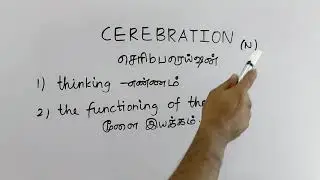 CEREBRATION (N)
செரிப்ரெய்ஷன்
1) thinking - எண்ணம்
2) the functioning of the
மூளை இயக்கம்.